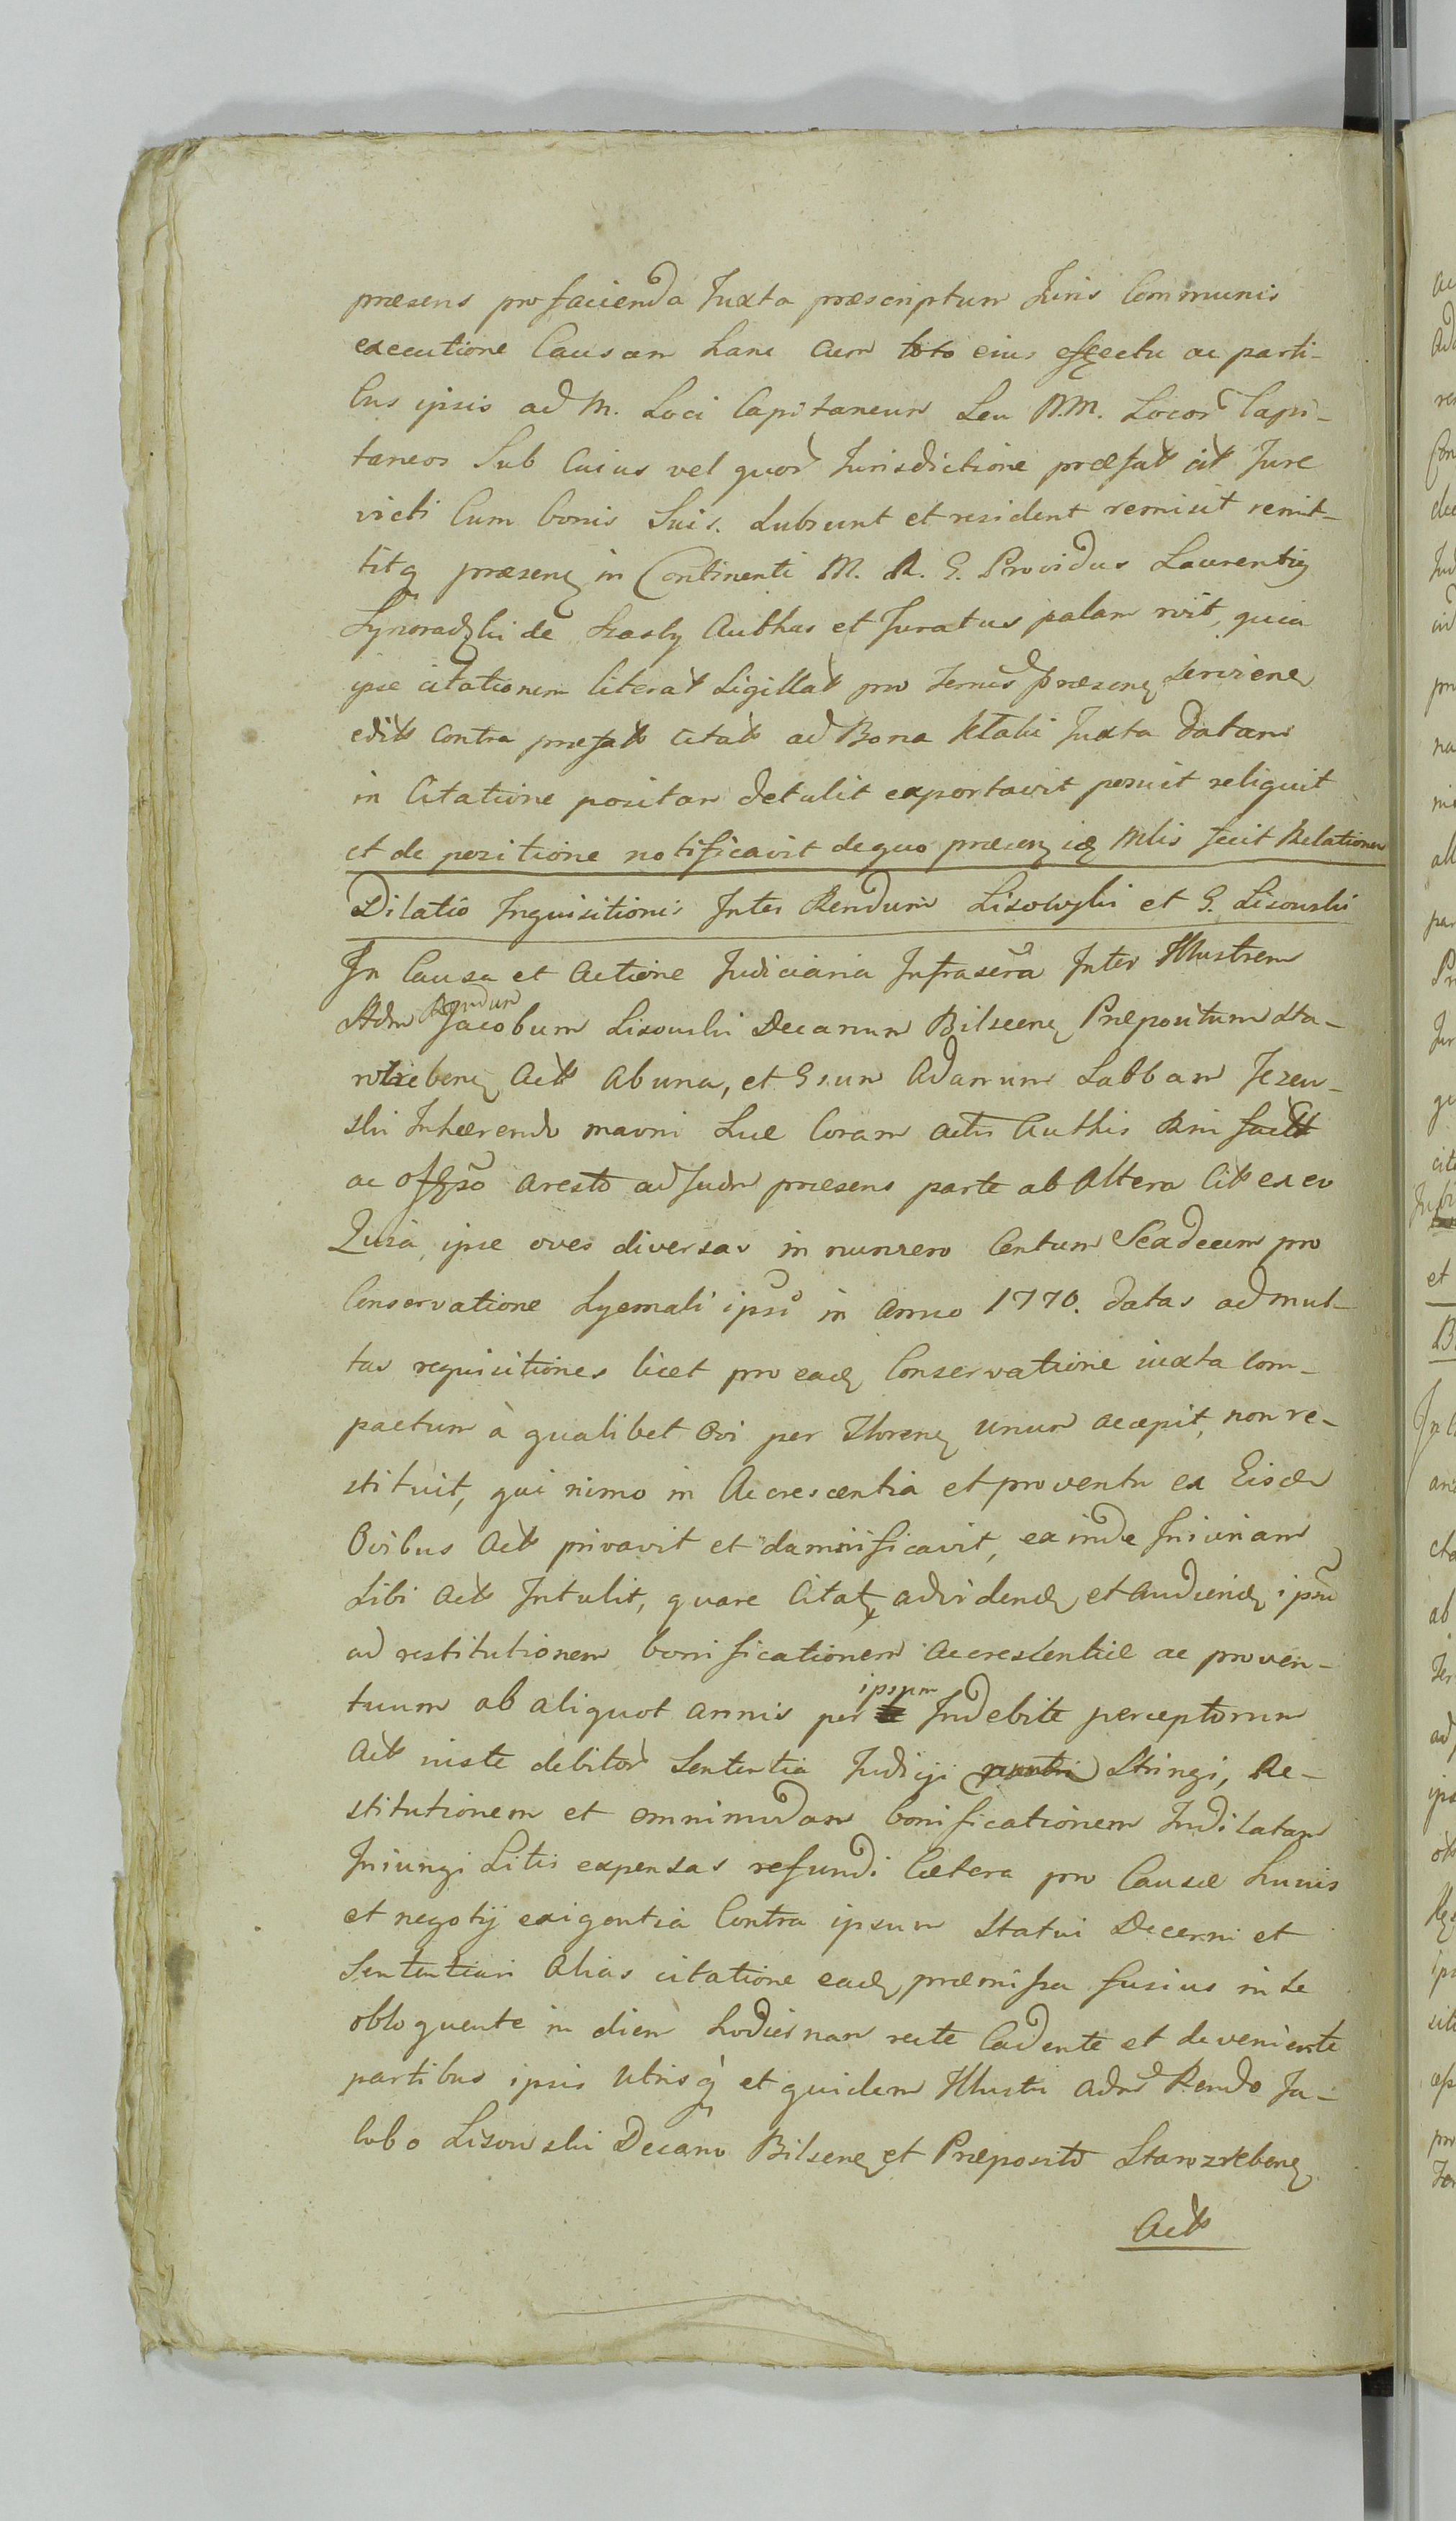 præsens pro facienda Juxta præscriptum Juris Communis
executione Causam hanc cum toto eius effectu ac parti-
bus ipsis ad M. Loci Capitaneum Seu M.M. Locor Capi-
taneos Sub Cuius vel quor Jurisdictione præfat cit Jure
victi Cum bonis Suis subsunt et resident remisit remit-
titq præsen in Continenti M. R. G. Providus Laurentiq
de Authus et Juratus palam rvit, quia
ipse citationem literat Sigillat pro termis præsen servien
edit Contra præfat Citat ad Bona Juxta Datam
in Citatione positam detulit exportavit posuit reliquit
et de positione notificavit dequo præsen Mlis fecit Relationem
Dilatio Inquisitionis Inter Rendum Lisowski et G. Lisowski
In Causa et Actione Judiciaria Infrascra Inter Illustrem
Adm Rendum Jacobum Lisowski Decanum Bilscen Præpositum Sta-
rozreben Act ab una, et Gsum Adamum Labbam Jezew-
ski Inhærendo mavni Suæ Coram actis Authis
ac offso aresto ad Judm præsens parte ab Altera Cit ex eo
Quia ipse oves diversas in numero Centum Sexdecim pro
Conservatione hyemali ipsi in Anno 1770. datas ad mul-
tas requisitiones licet pro ead Conservatione iuxta com-
pactum à qualibet Ovi per Floren unum accepit, non re-
stituit, qui nimo in Accrescentia et proventu ex Eisdem
Ovibus Act privavit et damnificavit, ex inde Iniuriam
Sibi Act Intulit, quare Citat ad videnð et audienð ipsu
ad restitutionem bonificationem Accrescentiæ ac proven-
tuum ab aliquot annis per ipsum Indebite perceptorum
Act iuste debitor Sententia Judicij Stringi, Re-
stitutionem et omnimodam bonificationem Indilatam
Iniungi Litis expensas refundi Cætera pro Causæ huius
et negotij exigentia Contra ipsum Statui Decerni et
Sententiari Alias citatione ead præmissa fusius in se
obloquente in diem hodiernam recte Cadente et deveniente
partibus ipsis Utrisq et quidem Illustri Adm Rendo Ja-
cobo Lisowski Decano Bilsen et Præposito Starozreben
Act